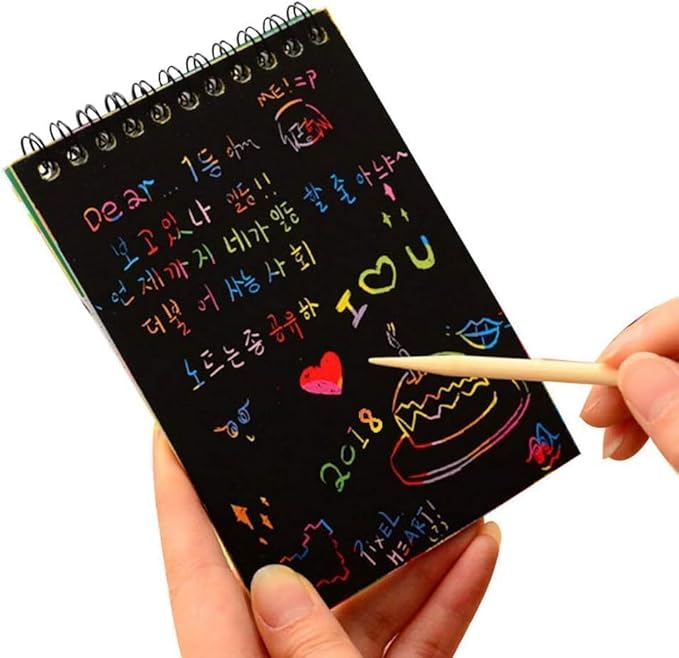 ME! =P
Dear... 1등
보고있나 일등!!
언제까지 네가 일등 할 줄 아냐~
더불어 사능 사회
노드는 중 공유하
I ♡ U
2018
PIXEL
HEART!!